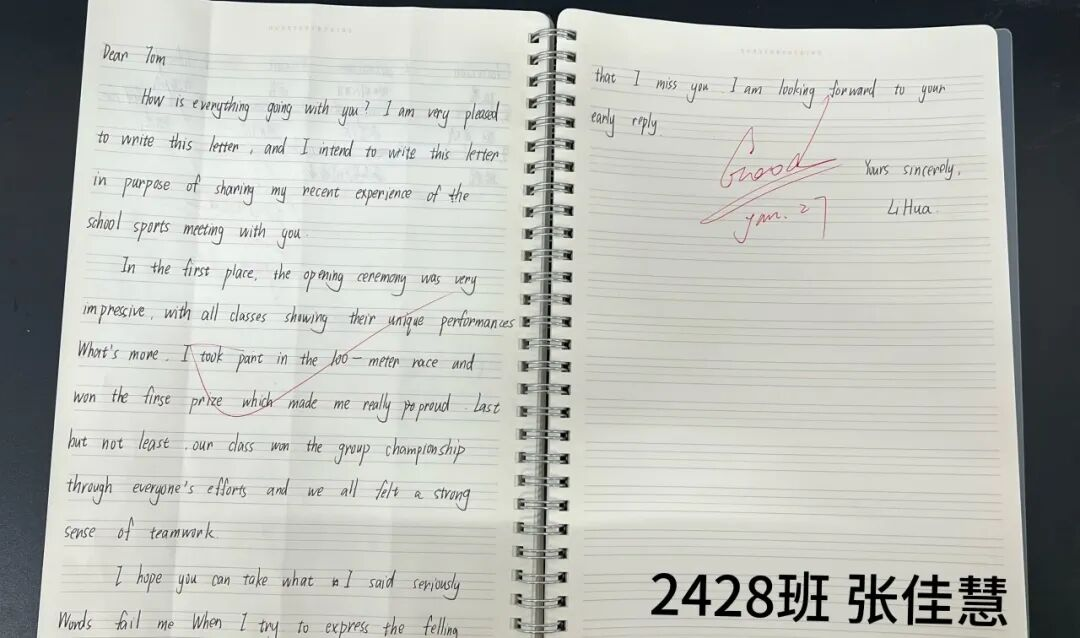 Dear Tom
How is everything going with you? I am very pleased
to write this letter, and I intend to write this letter
in purpose of sharing my recent experience of the
school sports meeting with you.
In the first place, the opening ceremony was very
impressive, with all classes showing their unique performances
What's more, I took part in the 100-meter race and
won the firse prize which made me really proud. Last
but not least, our class won the group championship
through everyone's efforts and we all felt a strong
sense of teamwork.
I hope you can take what I said seriously
Words fail me When I try to express the felling
that I miss you. I am looking forward to your
early reply.
Good
Jan. 27
Yours sincerely,
Li Hua.
2428班 张佳慧